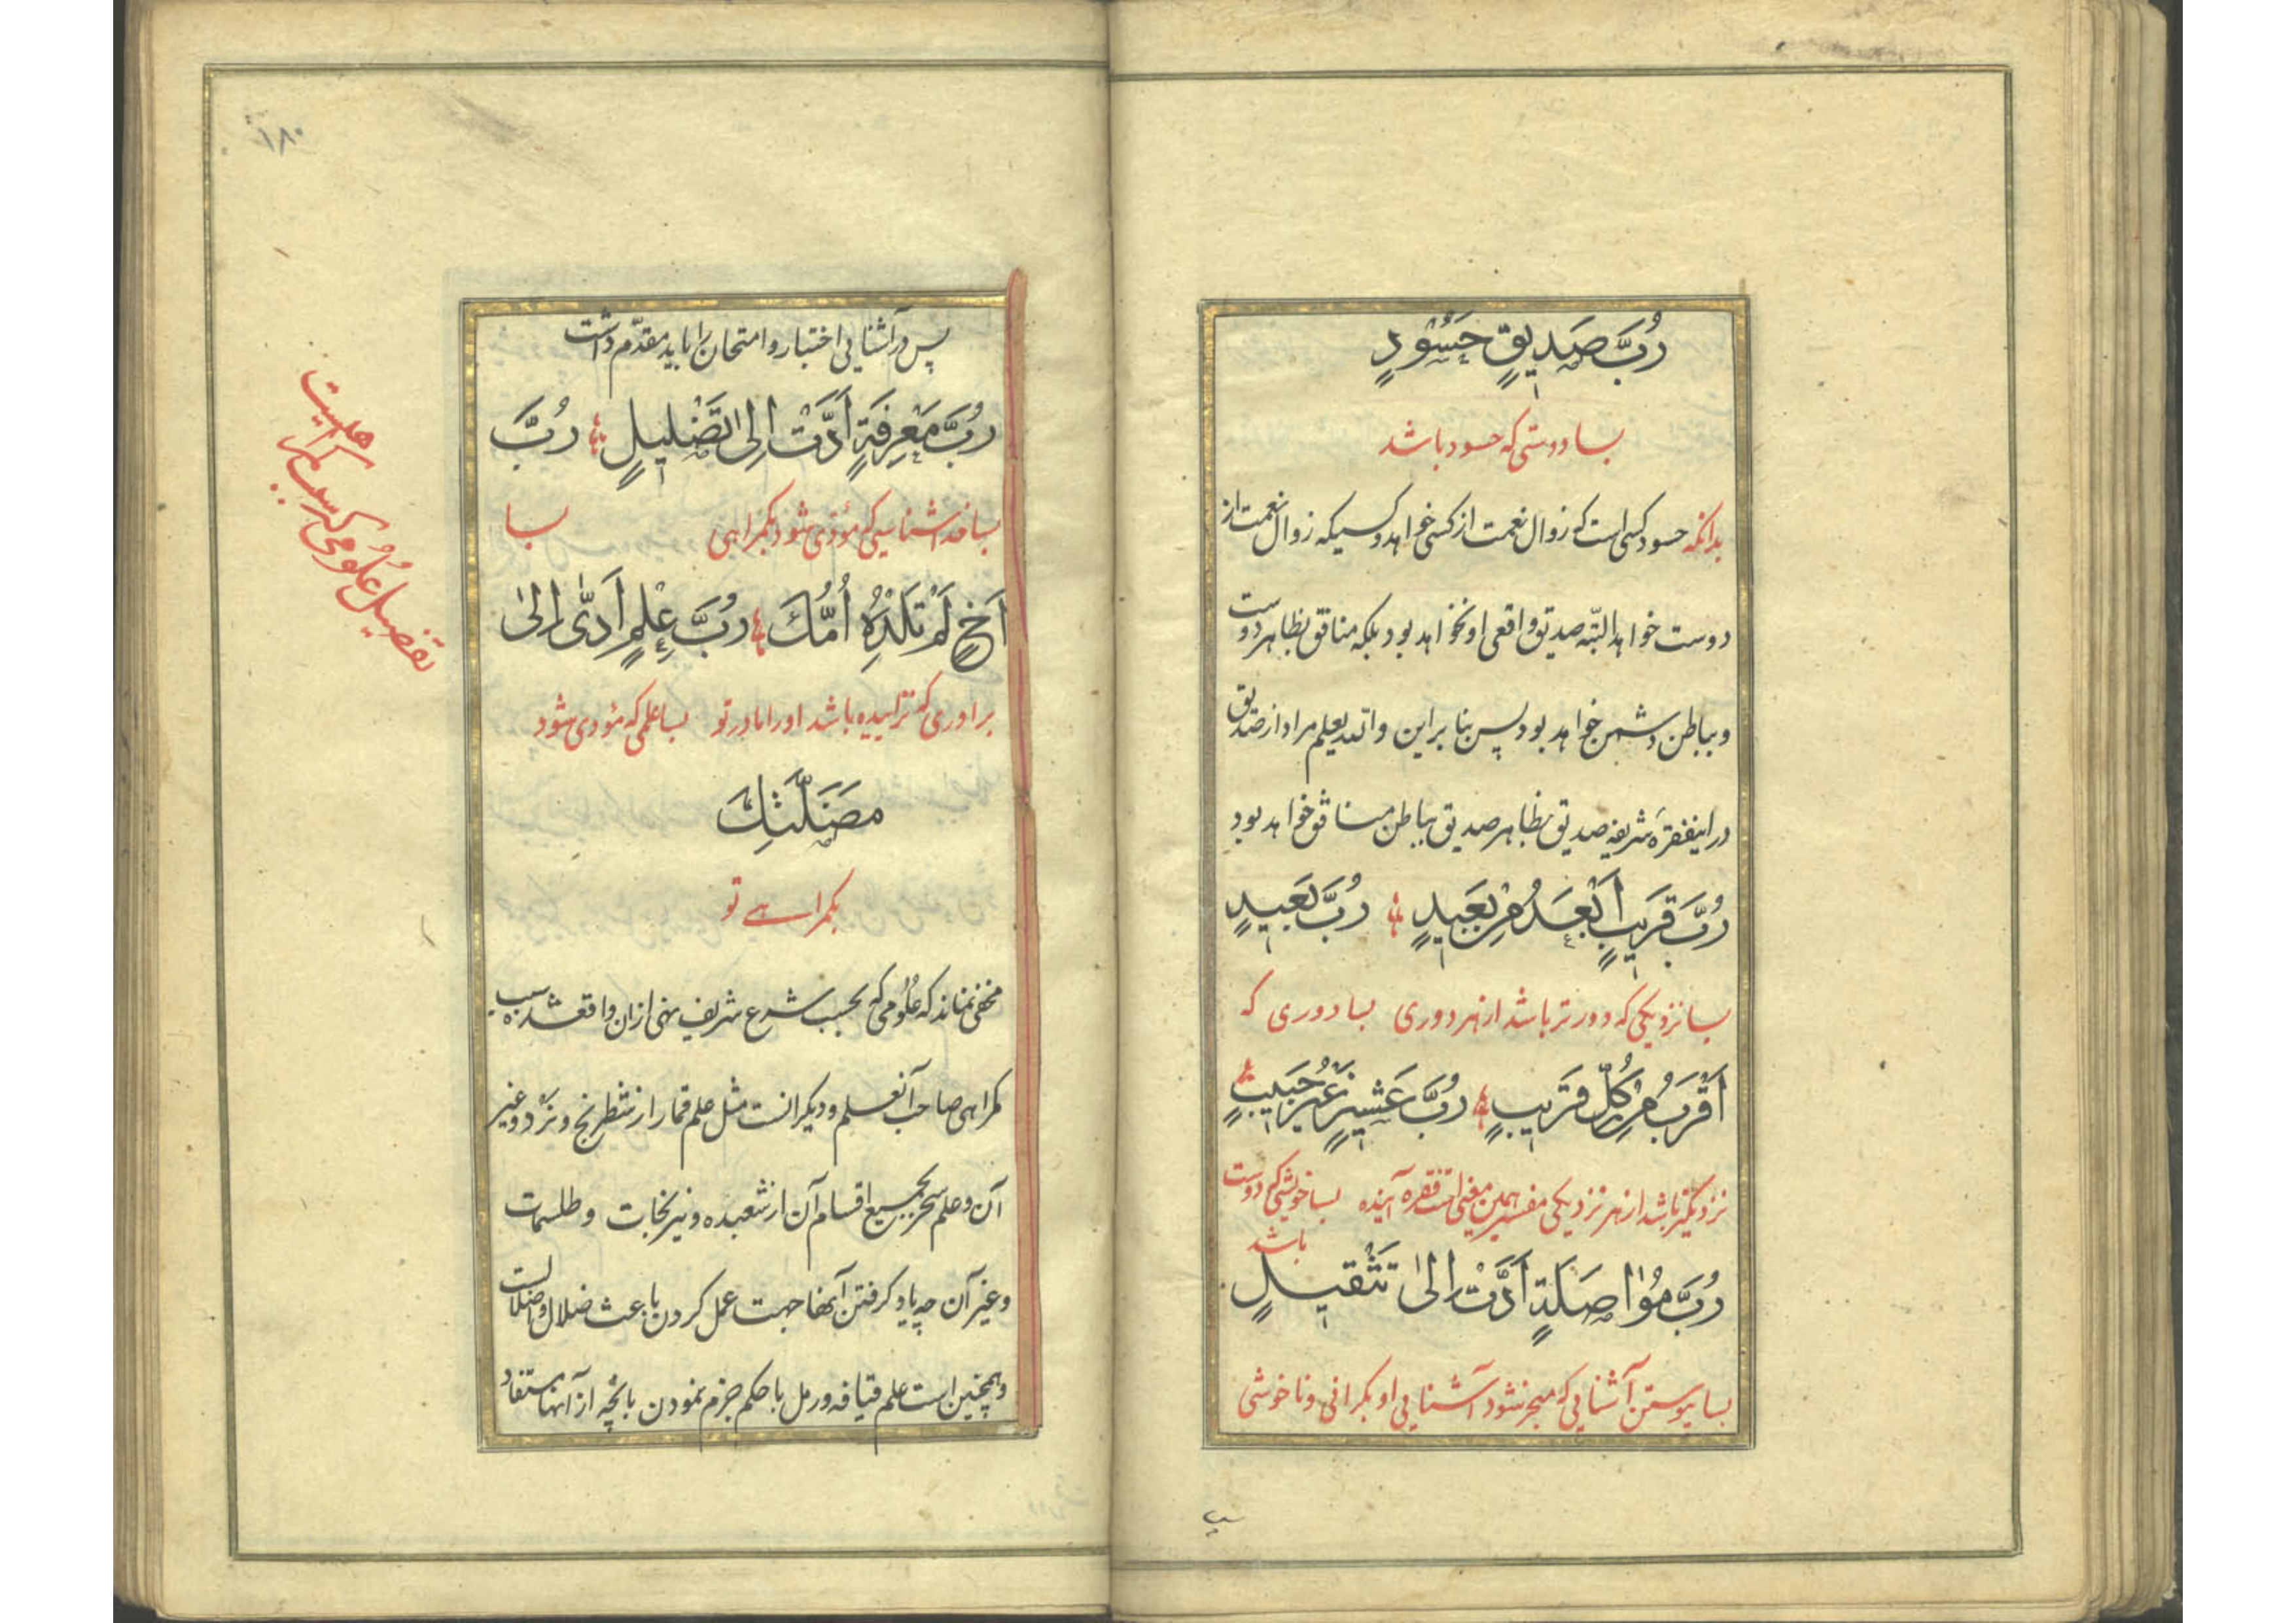 رُبَّ صَدیقٍ حَسُودٍ
بسا دوستی که حسود باشد
بدانکه حسود کسی است که زوال نعمت از کسی خواهد و کسیکه زوال نعمت از
دوست خواهد البتّه صدیق واقعی او نخواهد بود بلکه منافق بظاهر دوست
و بباطن دشمن خواهد بود پس بنا براین والله یعلم مراد از صدیق
در اینفقرهٔ شریفه صدیق بظاهر صدیق بباطن منافق خواهد بود
رُبَّ قَریبٍ اَبْعَدُ مِنْ بَعیدٍ رُبَّ بَعیدٍ
بسا نزدیکی که دورتر باشد از هر دوری بسا دوری که
اَقْرَبُ مِنْ کُلِّ قَریبٍ رُبَّ عَشیرٍ غَیْرُ حَبیبٍ
نزدیکتر باشد از هر نزدیکی مفسر همین معنی است فقره آینده بسا خویشی که دوست
باشد
رُبَّ مُوٰاصَلَةٍ اَدَّتْ اِلیٰ تَثْقیلٍ
بسا پیوستن آشنایی که منجر شود آشنایی او بکرانی و ناخوشی
پس
۱۸۰
پس در آشنایی اختبار و امتحان را باید مقدّم داشت
رُبَّ مَعْرِفَةٍ اَدَّتْ اِلیٰ تَضْلیلٍ رُبَّ
بسا خداشناسیکه مؤدی شود بکمراهی بسا
اَخٍ لَمْ تَلِدْهُ اُمُّكَ رُبَّ عِلْمٍ اَدّٰی اِلیٰ
برادری که نزاییده باشد او را مادر تو بسا علمی که مؤدی شود
مَضَلَّتِكَ
بکمراهی تو
مخفی نماند که علُومی که بحسب شرع شریف نهی از ان واقعشده سبب
کمراهی صاحب آنعلم و دیکرانست مثل علم قمار از شطرنج و نرد و غیر
آن و علم سحر بجمیع اقسام آن از شعبده و نیرنجات و طلسمات
و غیر آن چه یاد کرفتن آنها جهت عمل کردن باعث ضلال و اضلالست
و همچنین است علم قیافه و رمل با حکم جزم نمودن بانچه از آنها مستفاد
تفصیل علُومی که سبب کمراهیست